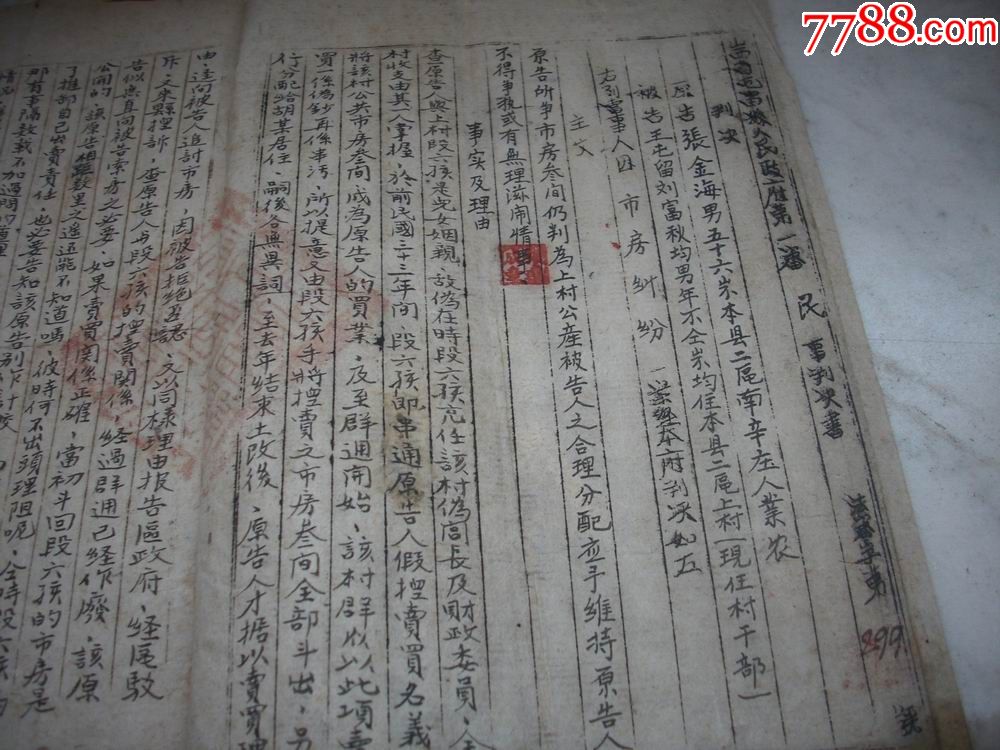 7788.com
民事判决書
899
號
判决
原告張金海男五十六岁本县二區南辛庄人業农
被告王屯留刘富秋均男年不仝岁均住本县二區上村一現任村干部一
右列當事人因市房糾纷一案經本府判决如左
主文
原告所争市房叁间仍判為上村公產被告人之合理分配应予维持原告人
不得争执或有無理滋闹情事、
事实及理由
查原告人與上村段六孩是兒女姻親、敌偽在時段六孩充任該村偽閭長及財政委員、全
村收支由其一人掌握、於前民國三十三年間、段六孩即串通原告人假捏賣買名義
將該村公共市房叁间成為原告人的買業、及至群運開始、該村群以以此項賣
買係偽鈔、再係事污、所以提意又由段六孩手將捏賣之市房叁间全部斗出、另
行分配給胡某居住、嗣後各無異詞、至去年结束土改後、原告人才據以賣買理
由、達向被告人追討市房、因被告拒绝丕認、又以同樣理由报告區政府、經區駁
斥、又來縣捏訴、查原告人與段六孩的捏賣関係、經過群運已經作廢、該原
告似無直向被告索房之必要、如果賣買関係正確、當初斗回段六孩的市房是
公開的、該原告相距数里之遥還能不知道嗎、彼時何不出頭理阻呢、仝時段六孩的
了推部自己出賣責任、也必要告知該原告
那有事隔数載不加過問的道理